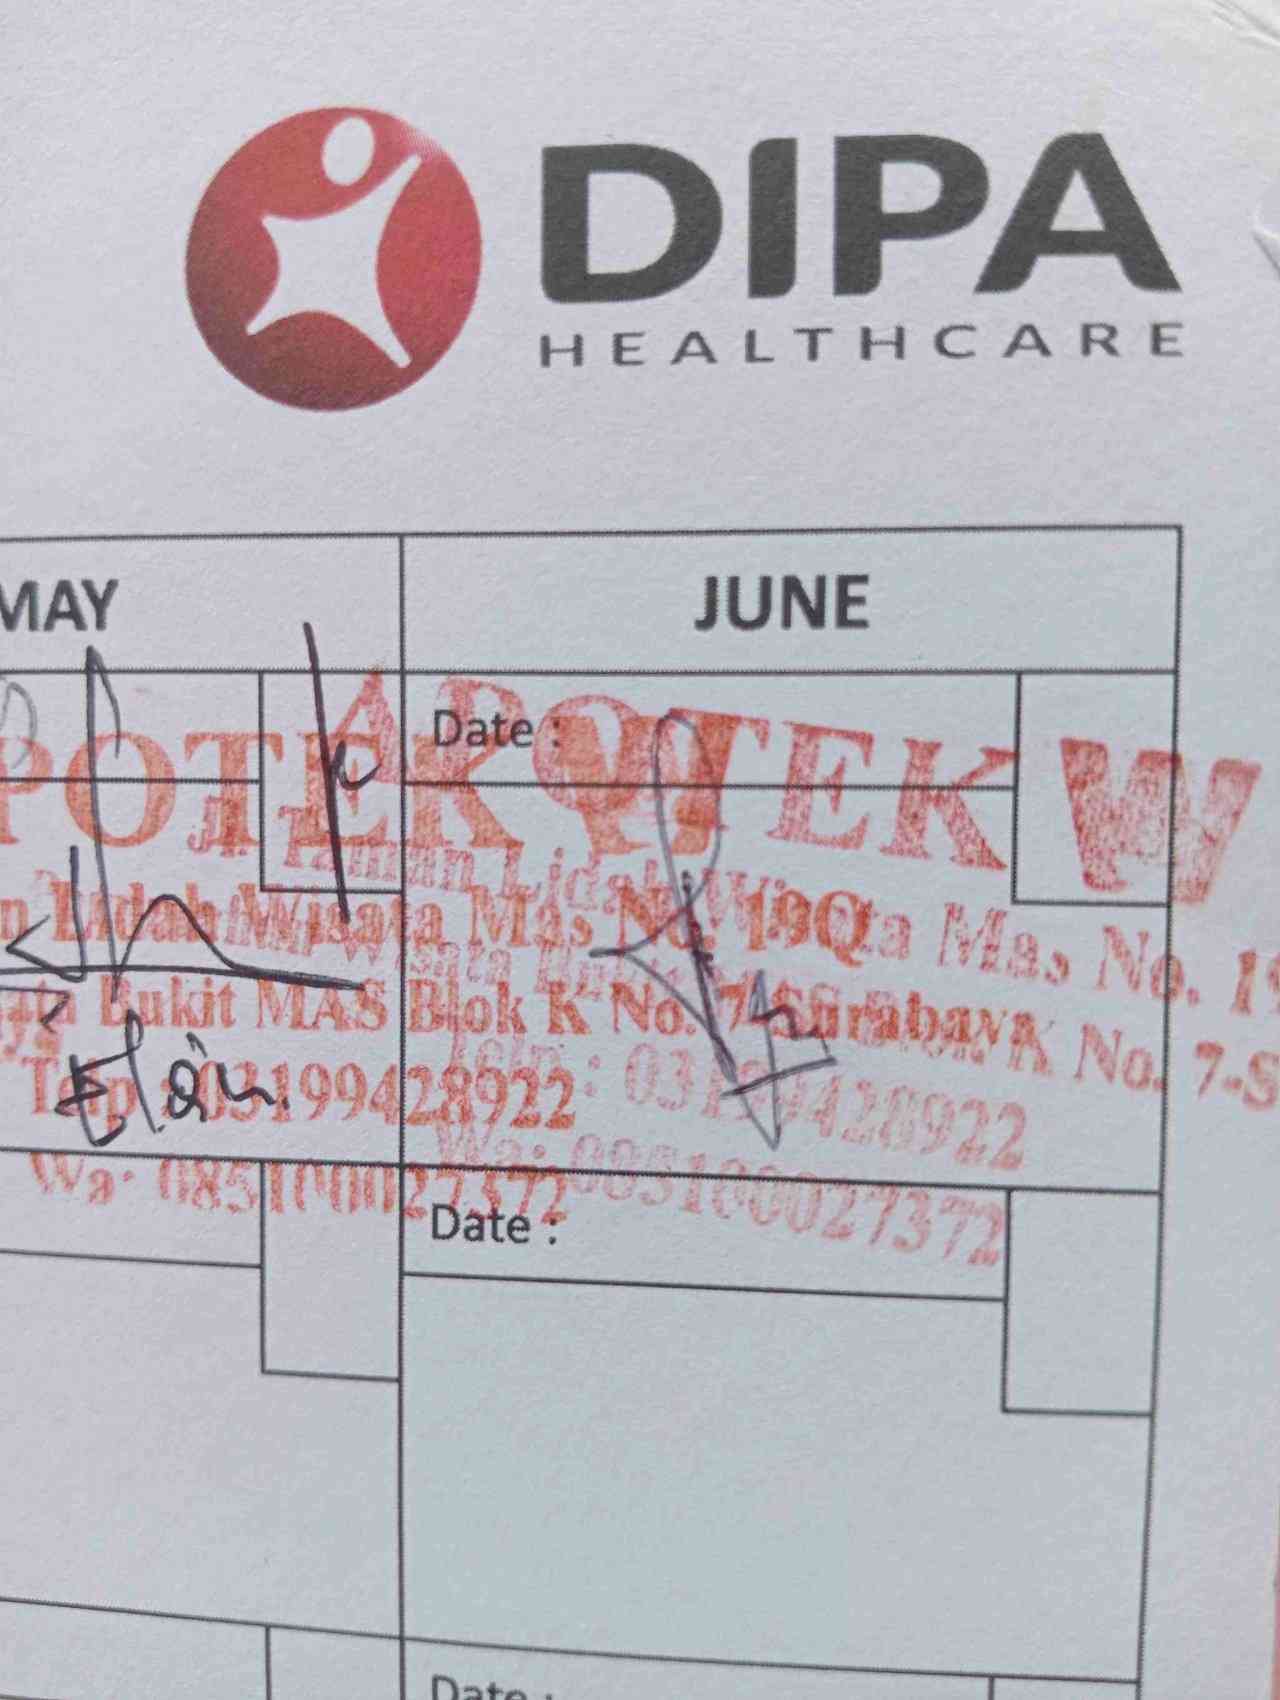 DIPA
HEALTHCARE
MAY
JUNE
Date :
POTEK W
n Lidah Wisata Mas No. 19Q
ata Bukit MAS Blok K No. 7-Surabaya
Telp : 03199428922
Wa: 085100027372
APOTEK W
Jl. Taman Lidah Wisata Mas No. 19
Wisata Bukit MAS Blok K No. 7-S
Telp : 03199428922
Wa: 085100027372
Date :
Date :